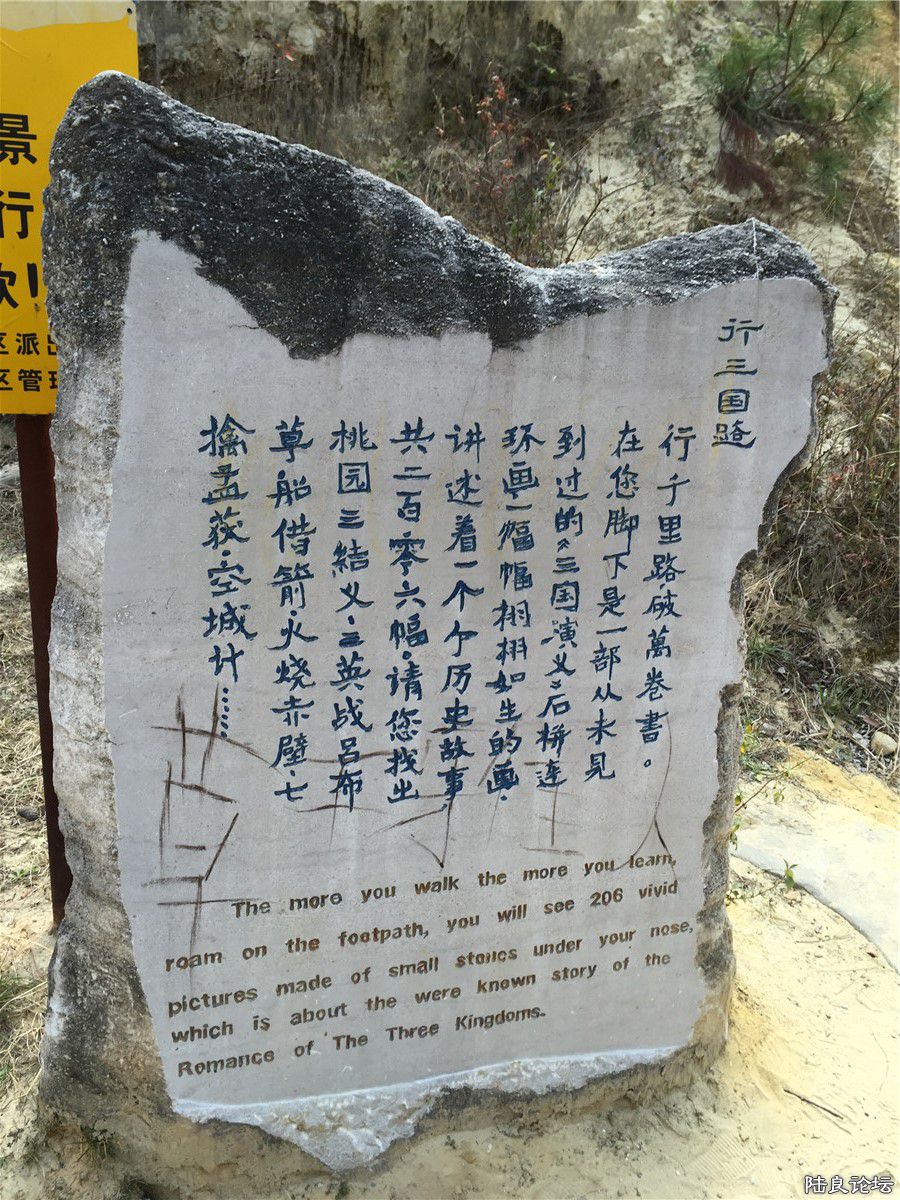 景
行
区派出
区管理
行三国路
行千里路·破萬卷書。
在您脚下是一部从未見
到过的《三国演义》石拼連
环画一幅幅栩栩如生的画·
讲述着一个个历史故事·
共二百·零六幅·请您找出
桃园三結义·三英战吕布
草船借箭·火烧赤壁·七
擒孟荻·空城计……
The more you walk the more you learn,
roam on the footpath, you will see 206 vivid
pictures made of small stones under your nose,
which is about the were known story of the
Romance of The Three Kingdoms.
陆良论坛